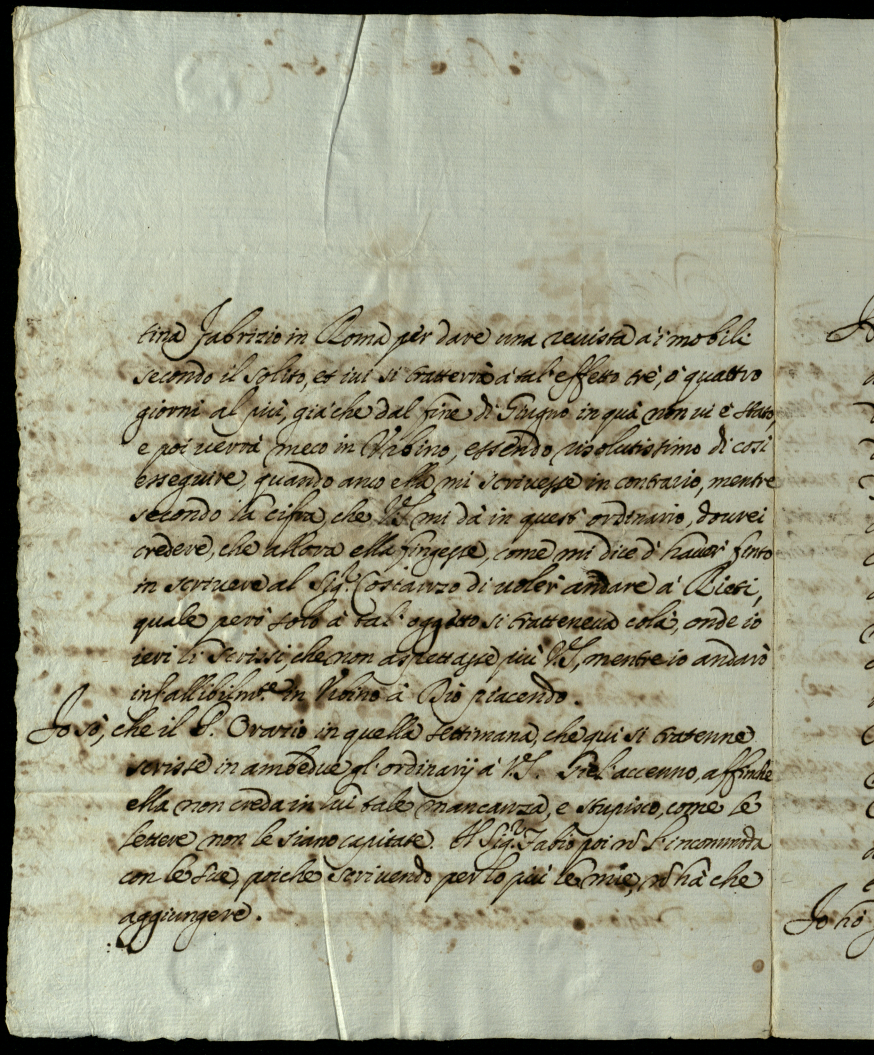 tina Fabrizio in Roma per dare una reuista a i mobili
secondo il solito, et iui si tratterrà à tal' effetto trè, ò quattro
giorni al più, già che dal fine di Giugno in quà non ui è stato,
e poi uerrà meco in Vrbino, essendo risolutissimo di così
esseguire, quando anco ella mi scriuesse in contrario, mentre
secondo la cifra, che VS mi dà in quest' ordinario, dourei
credere, che allora ella fingesse, come mi dice d' hauer finto
in scriuere al Sigr. Costanzo di uoler andare à Rieti,
quale però solo à tal' oggetto si tratteneua colà, onde io
ieri li scrissi, che non aspettasse più VS, mentre io andarò
infallibilmte. in Vrbino à Dio piacendo.
Io sò, che il S. Orazio in quella settimana, che quì si tratenne
scrisse in ambedue gl' ordinarij à V.S. Gle l'accenno, affinche
ella non creda in lui tale mancanza, e stupisco, come le
lettere non le siano capitate. Il Sigr. Fabio poi nō l'incommoda
con le sue, poiche scriuendo per lo più le mie, nō hà che
aggiungere.
Io hò